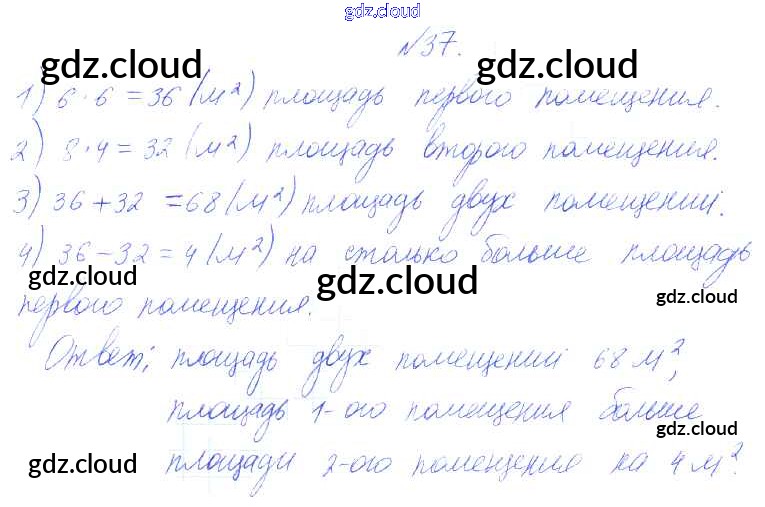 gdz.cloud
№37.
gdz.cloud gdz.cloud
1) 6·6=36 (м²) площадь первого помещения.
2) 8·4=32 (м²) площадь второго помещения.
3) 36+32=68 (м²) площадь двух помещений.
4) 36-32=4 (м²) на столько больше площадь
gdz.cloud gdz.cloud gdz.cloud
первого помещения.
Ответ: площадь двух помещений 68 м²,
площадь 1-ого помещения больше
gdz.cloud
площади 2-ого помещения на 4 м².
gdz.cloud gdz.cloud gdz.cloud